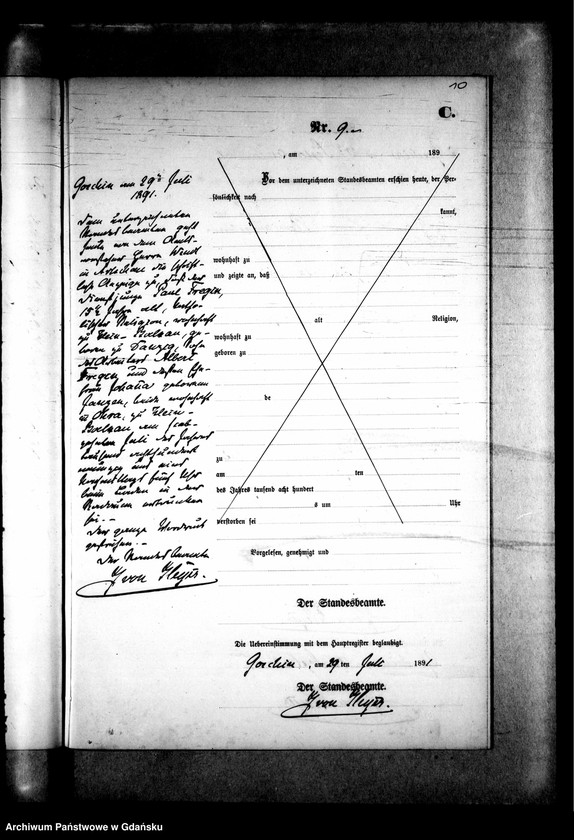 10
C.
Nr. 9.
, am 189
Vor dem unterzeichneten Standesbeamten erschien heute, der Per-
sönlichkeit nach
kannt,
wohnhaft zu
und zeigte an, daß
alt Religion,
wohnhaft zu
geboren zu
de
zu
am ten
des Jahres tausend acht hundert
s um Uhr
verstorben sei
Vorgelesen, genehmigt und
Der Standesbeamte.
Goschin am 29ten Juli
1891.
Dem unterzeichneten
Standesbeamten geht
heute von dem Amts-
vorsteher Herrn
in die schrift-
liche Anzeige zu, daß der
Dienstjunge Paul Fregin,
15½ Jahre alt, katho-
lischer Religion, wohnhaft
zu Klein- ge-
boren zu Danzig, Sohn
des Albert
Fregin und dessen Ehe-
frau Johanna geborenen
Janzen, beide wohnhaft
in Ohra, zu Klein-
am
Juli des Jahres
tausend achthundert
neunzig und eins
früh Uhr
beim Baden in der
Radaune ertrunken
sei.-
Der ganze Vordruck
gestrichen.-
Der Standesbeamte
Die Uebereinstimmung mit dem Hauptregister beglaubigt.
Goschin, am 29 ten Juli 1891
Der Standesbeamte.
Archiwum Państwowe w Gdańsku